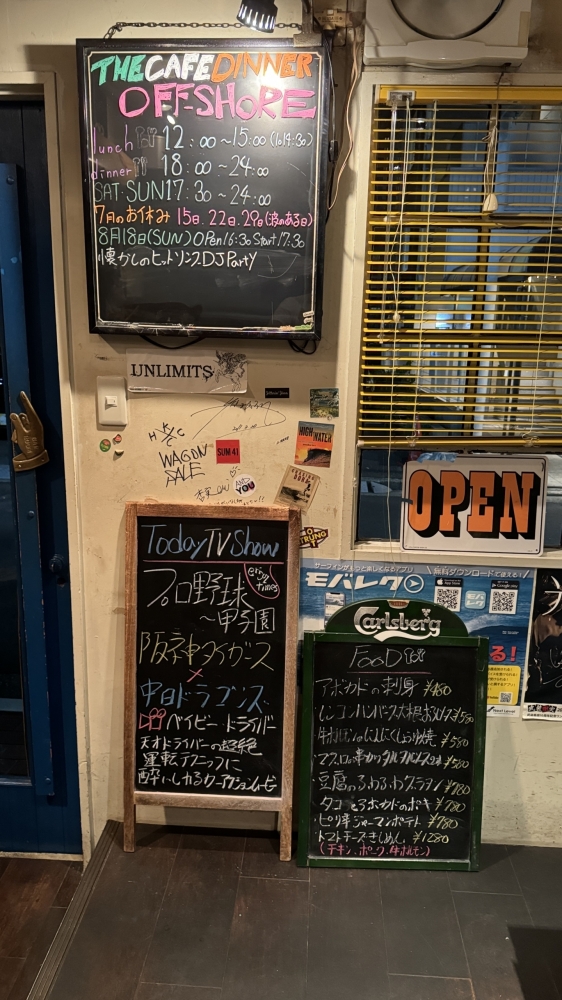 THE CAFE DINNER
OFF-SHORE
lunch 12:00～15:00 (lo14:30)
dinner 18:00～24:00
SAT・SUN 17:30～24:00
7月のお休み 15日.22日.29日(波のある日)
8月18日(SUN) OPen 16:30 Start 17:30
懐かしのヒットソングDJ Party
UNLIMITS
HIGH WATER
WAGON
SALE
SUM 41
AND YOU
OPEN
Today TV Show
enjoy times
プロ野球
～甲子園
阪神タイガース
×
中日ドラゴンズ
ベイビードライバー
天才ドライバーの超絶
運転テクニックに
酔いしれるカーアクションムービー
サーフィンがもっと楽しくなるアプリ
無料ダウンロードで使える!
モバレク
Carlsberg
FOOD
アボカドの刺身 ¥480
レンコンハンバーグ大根おろしポン酢 ¥580
牛ホルモンのにんにくしょうゆ焼 ¥580
マグロの串カツタルタルソース ¥580
豆腐のふわふわグラタン ¥780
タコとアボカドのポキ ¥780
ピリ辛ジャーマンポテト ¥780
トマトチーズきしめん ¥1280
(チキン、ポーク、牛ホルモン)